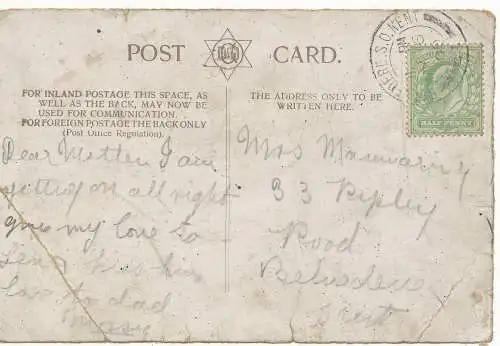 POST CARD.
FOR INLAND POSTAGE THIS SPACE, AS
WELL AS THE BACK, MAY NOW BE
USED FOR COMMUNICATION.
FOR FOREIGN POSTAGE THE BACK ONLY
(Post Office Regulation).
THE ADDRESS ONLY TO BE
WRITTEN HERE.
S.O. KENT
HALF PENNY
Dear Mother I am
getting on all right
give my love to
love to dad
Mrs Manwaring
33 Ripley
Road
Belvedere
Kent